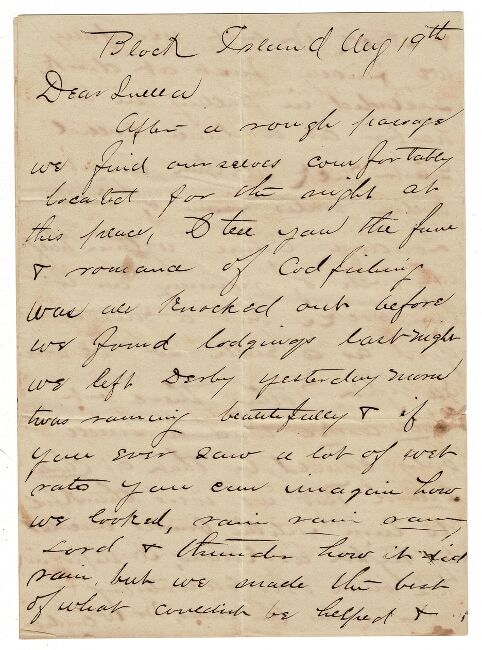 Block Island Aug 19th
Dear Luella
After a rough passage
we find ourselves comfortably
located for the night at
this place, I tell you the fun
& romance of Codfishing
was all Knocked out before
we found lodgings last night
we left Derby yesterday morn
twas raining beautifully & if
you ever saw a lot of wet
rats you can imagin how
we looked, rain rain rain,
Lord & thunder how it did
rain, but we made the best
of what couldnt be helped &